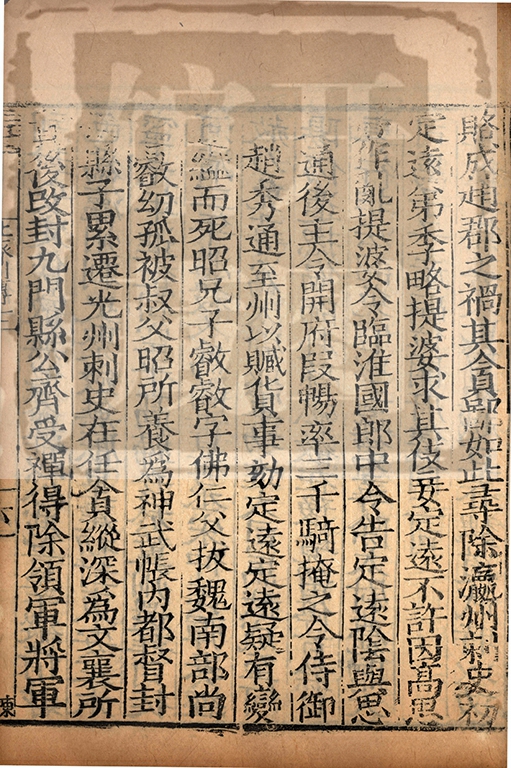 賂成趙郡之禍其貪鄙如此尋除瀛州刺史初
定遠弟季略提婆求其伎妾定遠不許因高思
好作亂提婆令臨淮國郎中令告定遠陰與思
好通後主令開府段暢率三千騎掩之令侍御
趙秀通至州以贓貨事劾定遠定遠疑有變
縊而死昭兄子叡叡字佛仁父拔魏南部尚
書叡幼孤被叔父昭所養為神武帳內都督封
縣子累遷光州刺史在任貪縱深為文襄所
後改封九門縣公齊受禪得除領軍將軍